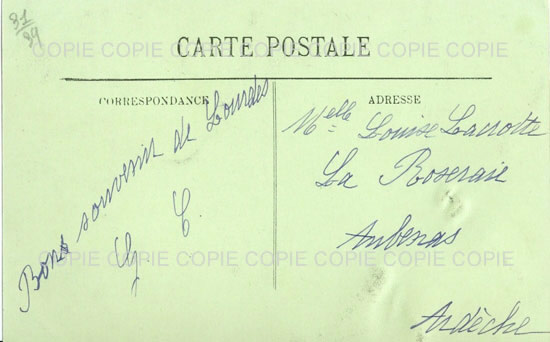 31/89
COPIE COPIE COPIE COPIE COPIE COPIE COPIE
CARTE POSTALE
CORRESPONDANCE
Bons souvenir de Lourdes
ADRESSE
Melle Louise Lacrotte
La Roseraie
Aubenas
Ardèche
COPIE COPIE COPIE COPIE COPIE COPIE COPIE